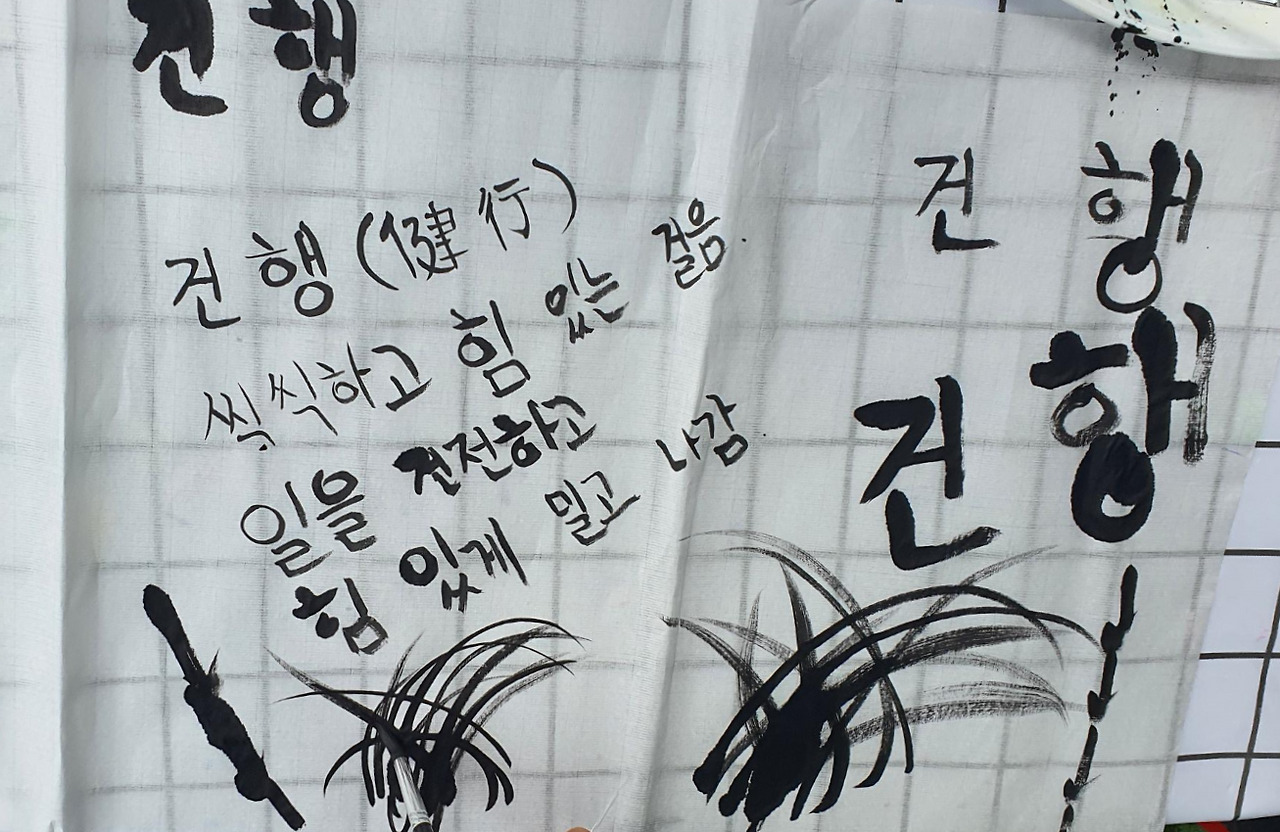 건행
건행 (健行)
씩씩하고 힘 있는 걸음.
일을 건전하고
힘 있게 밀고 나감.
건행
건행